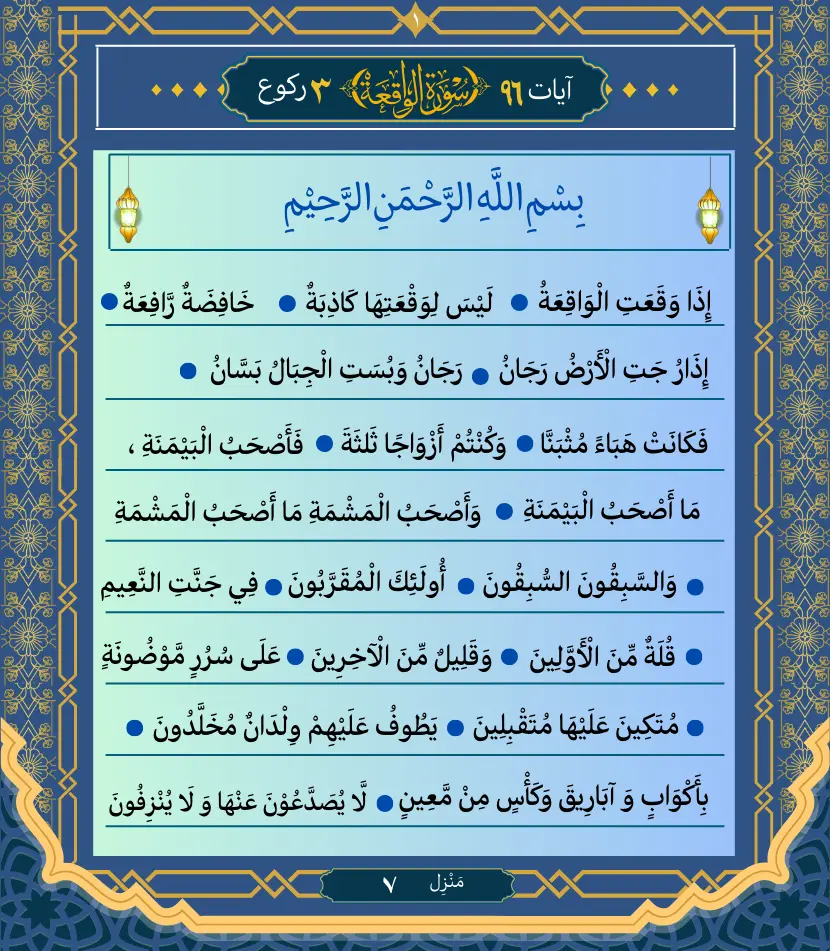 ١
آيات ٩٦ سُوْرَةُ الْوَاقِعَة ٣ رکوع
بِسْمِ اللَّهِ الرَّحْمَنِ الرَّحِيْمِ
إِذَا وَقَعَتِ الْوَاقِعَةُ ● لَيْسَ لِوَقْعَتِهَا كَاذِبَةٌ ● خَافِضَةٌ رَّافِعَةٌ ●
إِذَارُ جَتِ الْأَرْضُ رَجَانُ ● رَجَانُ وَبُسَتِ الْجِبَالُ بَسَّانُ ●
فَكَانَتْ هَبَاءً مُثْبَنَّا ● وَكُنْتُمْ أَزْوَاجًا ثَلثَةَ ● فَأَصْحَبُ الْبَيْمَنَةِ ،
مَا أَصْحَبُ الْبَيْمَنَةِ ● وَأَصْحَبُ الْمَشْمَةِ مَا أَصْحَبُ الْمَشْمَةِ
● وَالسَّبِقُونَ السُّبِقُونَ ● أُولَئِكَ الْمُقَرَّبُونَ ● فِي جَنَّتِ النَّعِيمِ
● قُلَةٌ مِّنَ الْأَوَّلِينَ ● وَقَلِيلٌ مِّنَ الْآخِرِينَ ● عَلَى سُرُرٍ مَّوْضُونَةٍ
● مُتَكِينَ عَلَيْهَا مُتَقْبِلِينَ ● يَطُوفُ عَلَيْهِمْ وِلْدَانٌ مُخَلَّدُونَ ●
بِأَكْوَابٍ وَ آبَارِيقَ وَكَأْسٍ مِنْ مَّعِينٍ ● لَّا يُصَدَّعُوْنَ عَنْهَا وَ لَا يُنْزِفُونَ
مَنْزِل ٧